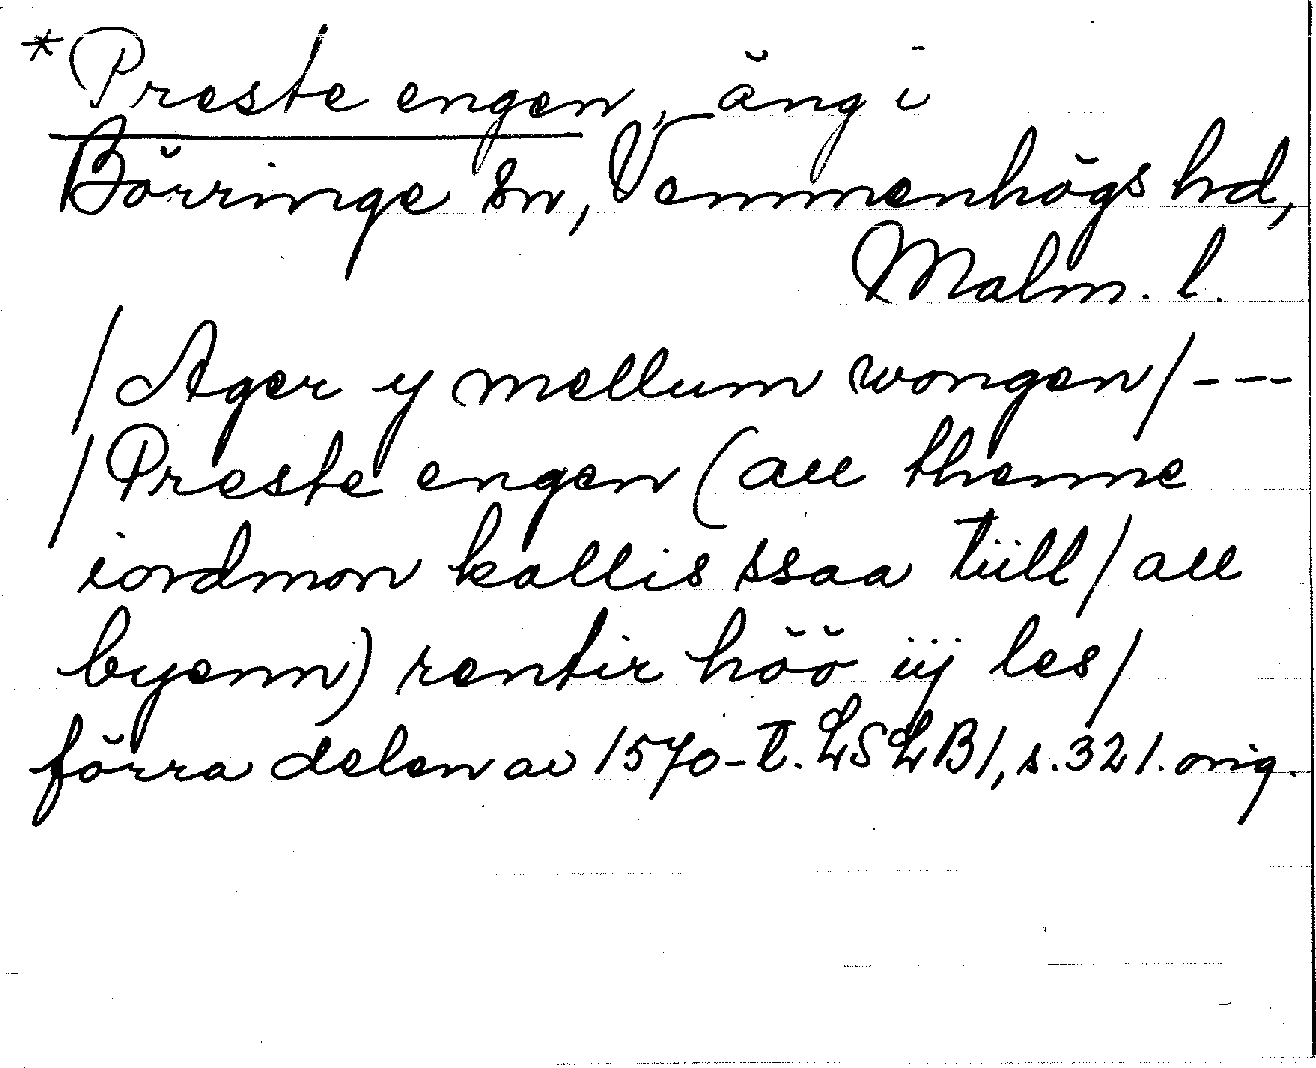 *Preste engen, äng i
Börringe sn, Vemmenhögs hd,
Malm. l.
/Ager y mellum wongen/---
/Preste engen (aee thenne
iordmon kallis ssaa tiill/aee
byenn) rentir höö iij les/
förra delen av 1570-t. LSLB1, s.321. orig.